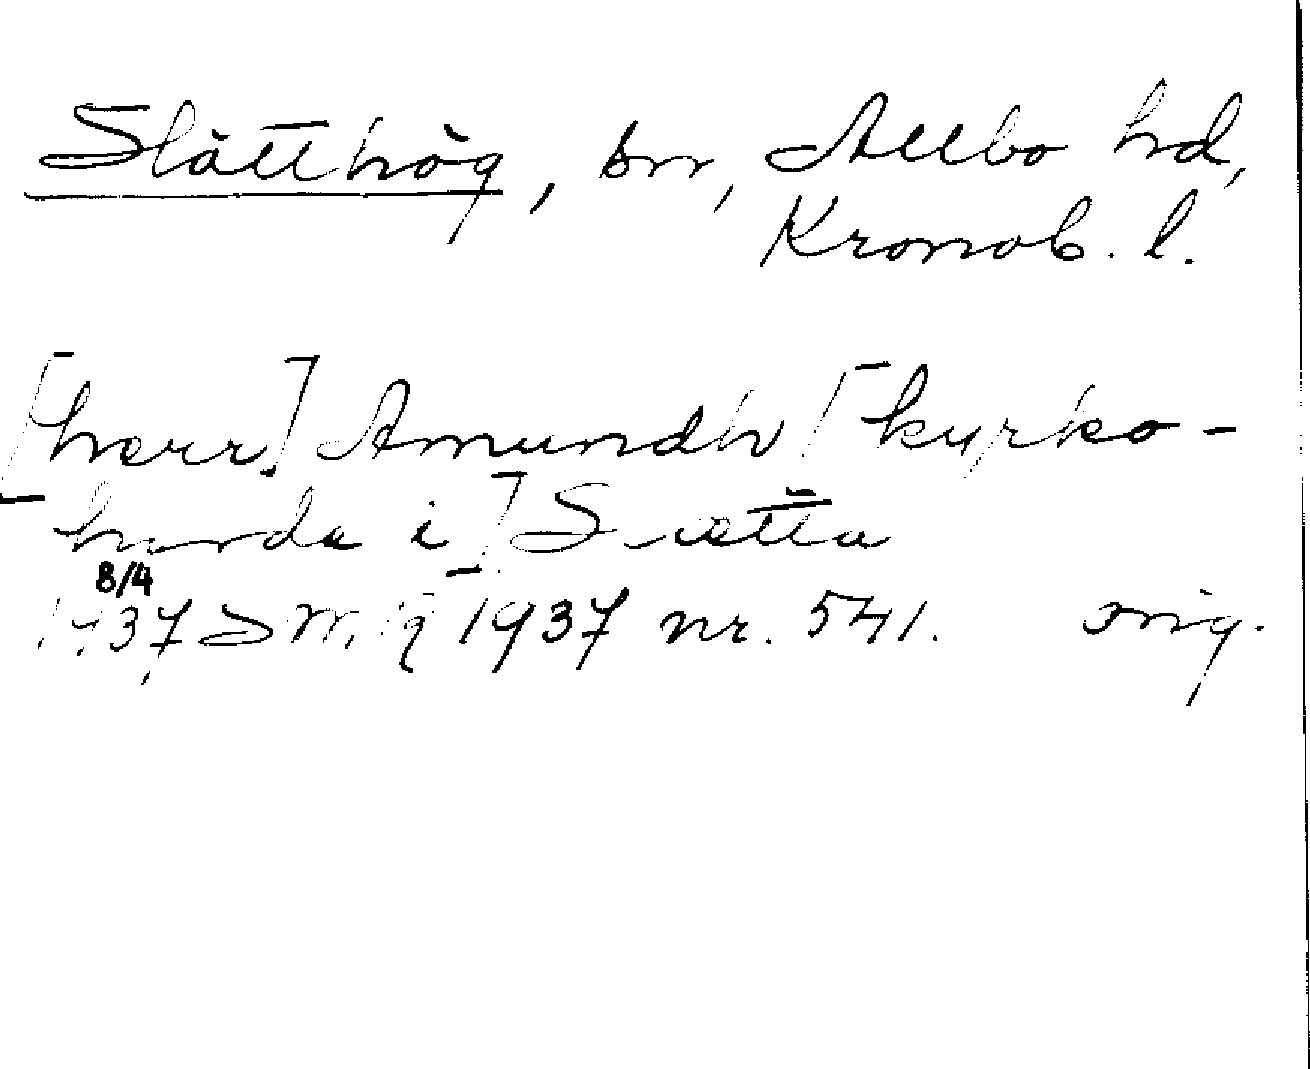 Slätthög, sn, Allbo hd,
Kronob. l.
[herr] Amundh [kyrko-
herde i] Slætta
8/4
1437 SMR 1937 nr. 541. orig.